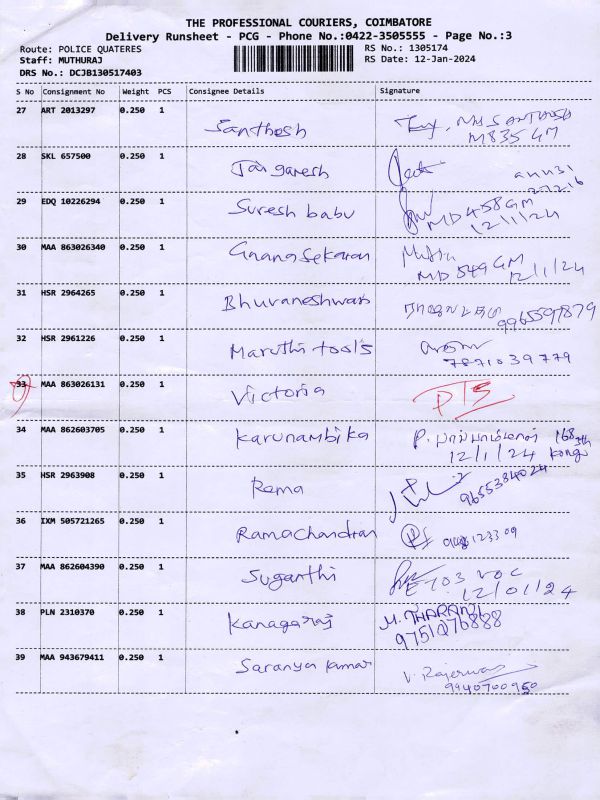 THE PROFESSIONAL COURIERS, COIMBATORE
Delivery Runsheet - PCG - Phone No.:0422-3505555 - Page No.:3
Route: POLICE QUATERES RS No.: 1305174
Staff: MUTHURAJ RS Date: 12-Jan-2024
DRS No.: DCJB130517403
S No Consignment No Weight PCS Consignee Details Signature
27 ART 2013297 0.250 1
Santhosh
M835 GM
28 SKL 657500 0.250 1
Jai ganesh
29 EDQ 10226294 0.250 1
Suresh babu MD 458 GM
12/1/24
30 MAA 863026340 0.250 1
Gnana Sekaran
MD 549 GM
12/1/24
31 HSR 2964265 0.250 1
Bhuvaneshwari
32 HSR 2961226 0.250 1
Maruthi tools
7871039779
33 MAA 863026131 0.250 1
Victoria
34 MAA 862603705 0.250 1
Karunambika P.
12/1/24
35 HSR 2963908 0.250 1
Rama 9655334024
36 IXM 505721265 0.250 1
Ramachandran
37 MAA 862604390 0.250 1
Suganthi E703 VOC
12/01/24
38 PLN 2310370 0.250 1
Kanagaraj M. THARANI
9751076888
39 MAA 943679411 0.250 1
Saranya kumar
9940700950